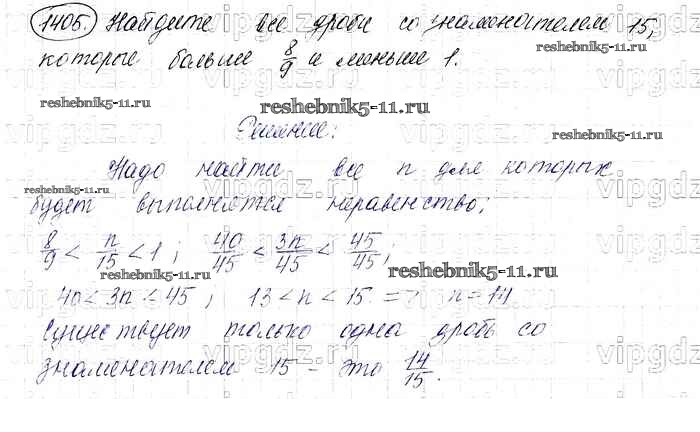 1405. Найдите все дроби со знаменателем 15,
которые больше 8/9 и меньше 1.
reshebnik5-11.ru
reshebnik5-11.ru
Решение:
reshebnik5-11.ru
Надо найти все n для которых
reshebnik5-11.ru
будет выполняться неравенство:
8/9 < n/15 < 1; 40/45 < 3n/45 < 45/45;
reshebnik5-11.ru
40 < 3n < 45; 13 < n < 15 => n = 14
reshebnik5-11.ru
Существует только одна дробь со
знаменателем 15 – это 14/15.
vipgdz.ru
vipgdz.ru
vipgdz.ru
vipgdz.ru